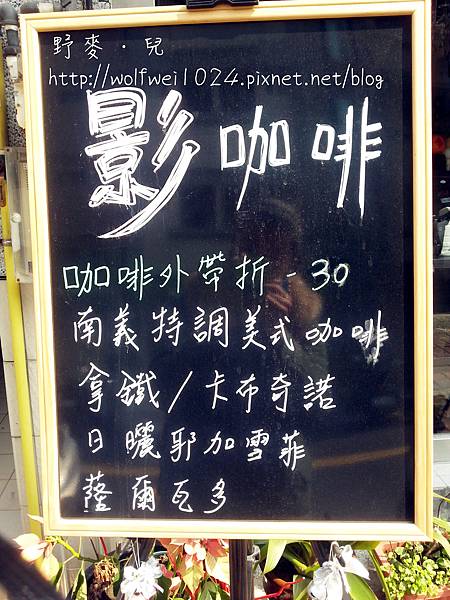 野麥·兒
http://wolfwei1024.pixnet.net/blog
影咖啡
咖啡外帶折-30
南義特調美式咖啡
拿鐵/卡布奇諾
日曬耶加雪菲
薩爾瓦多